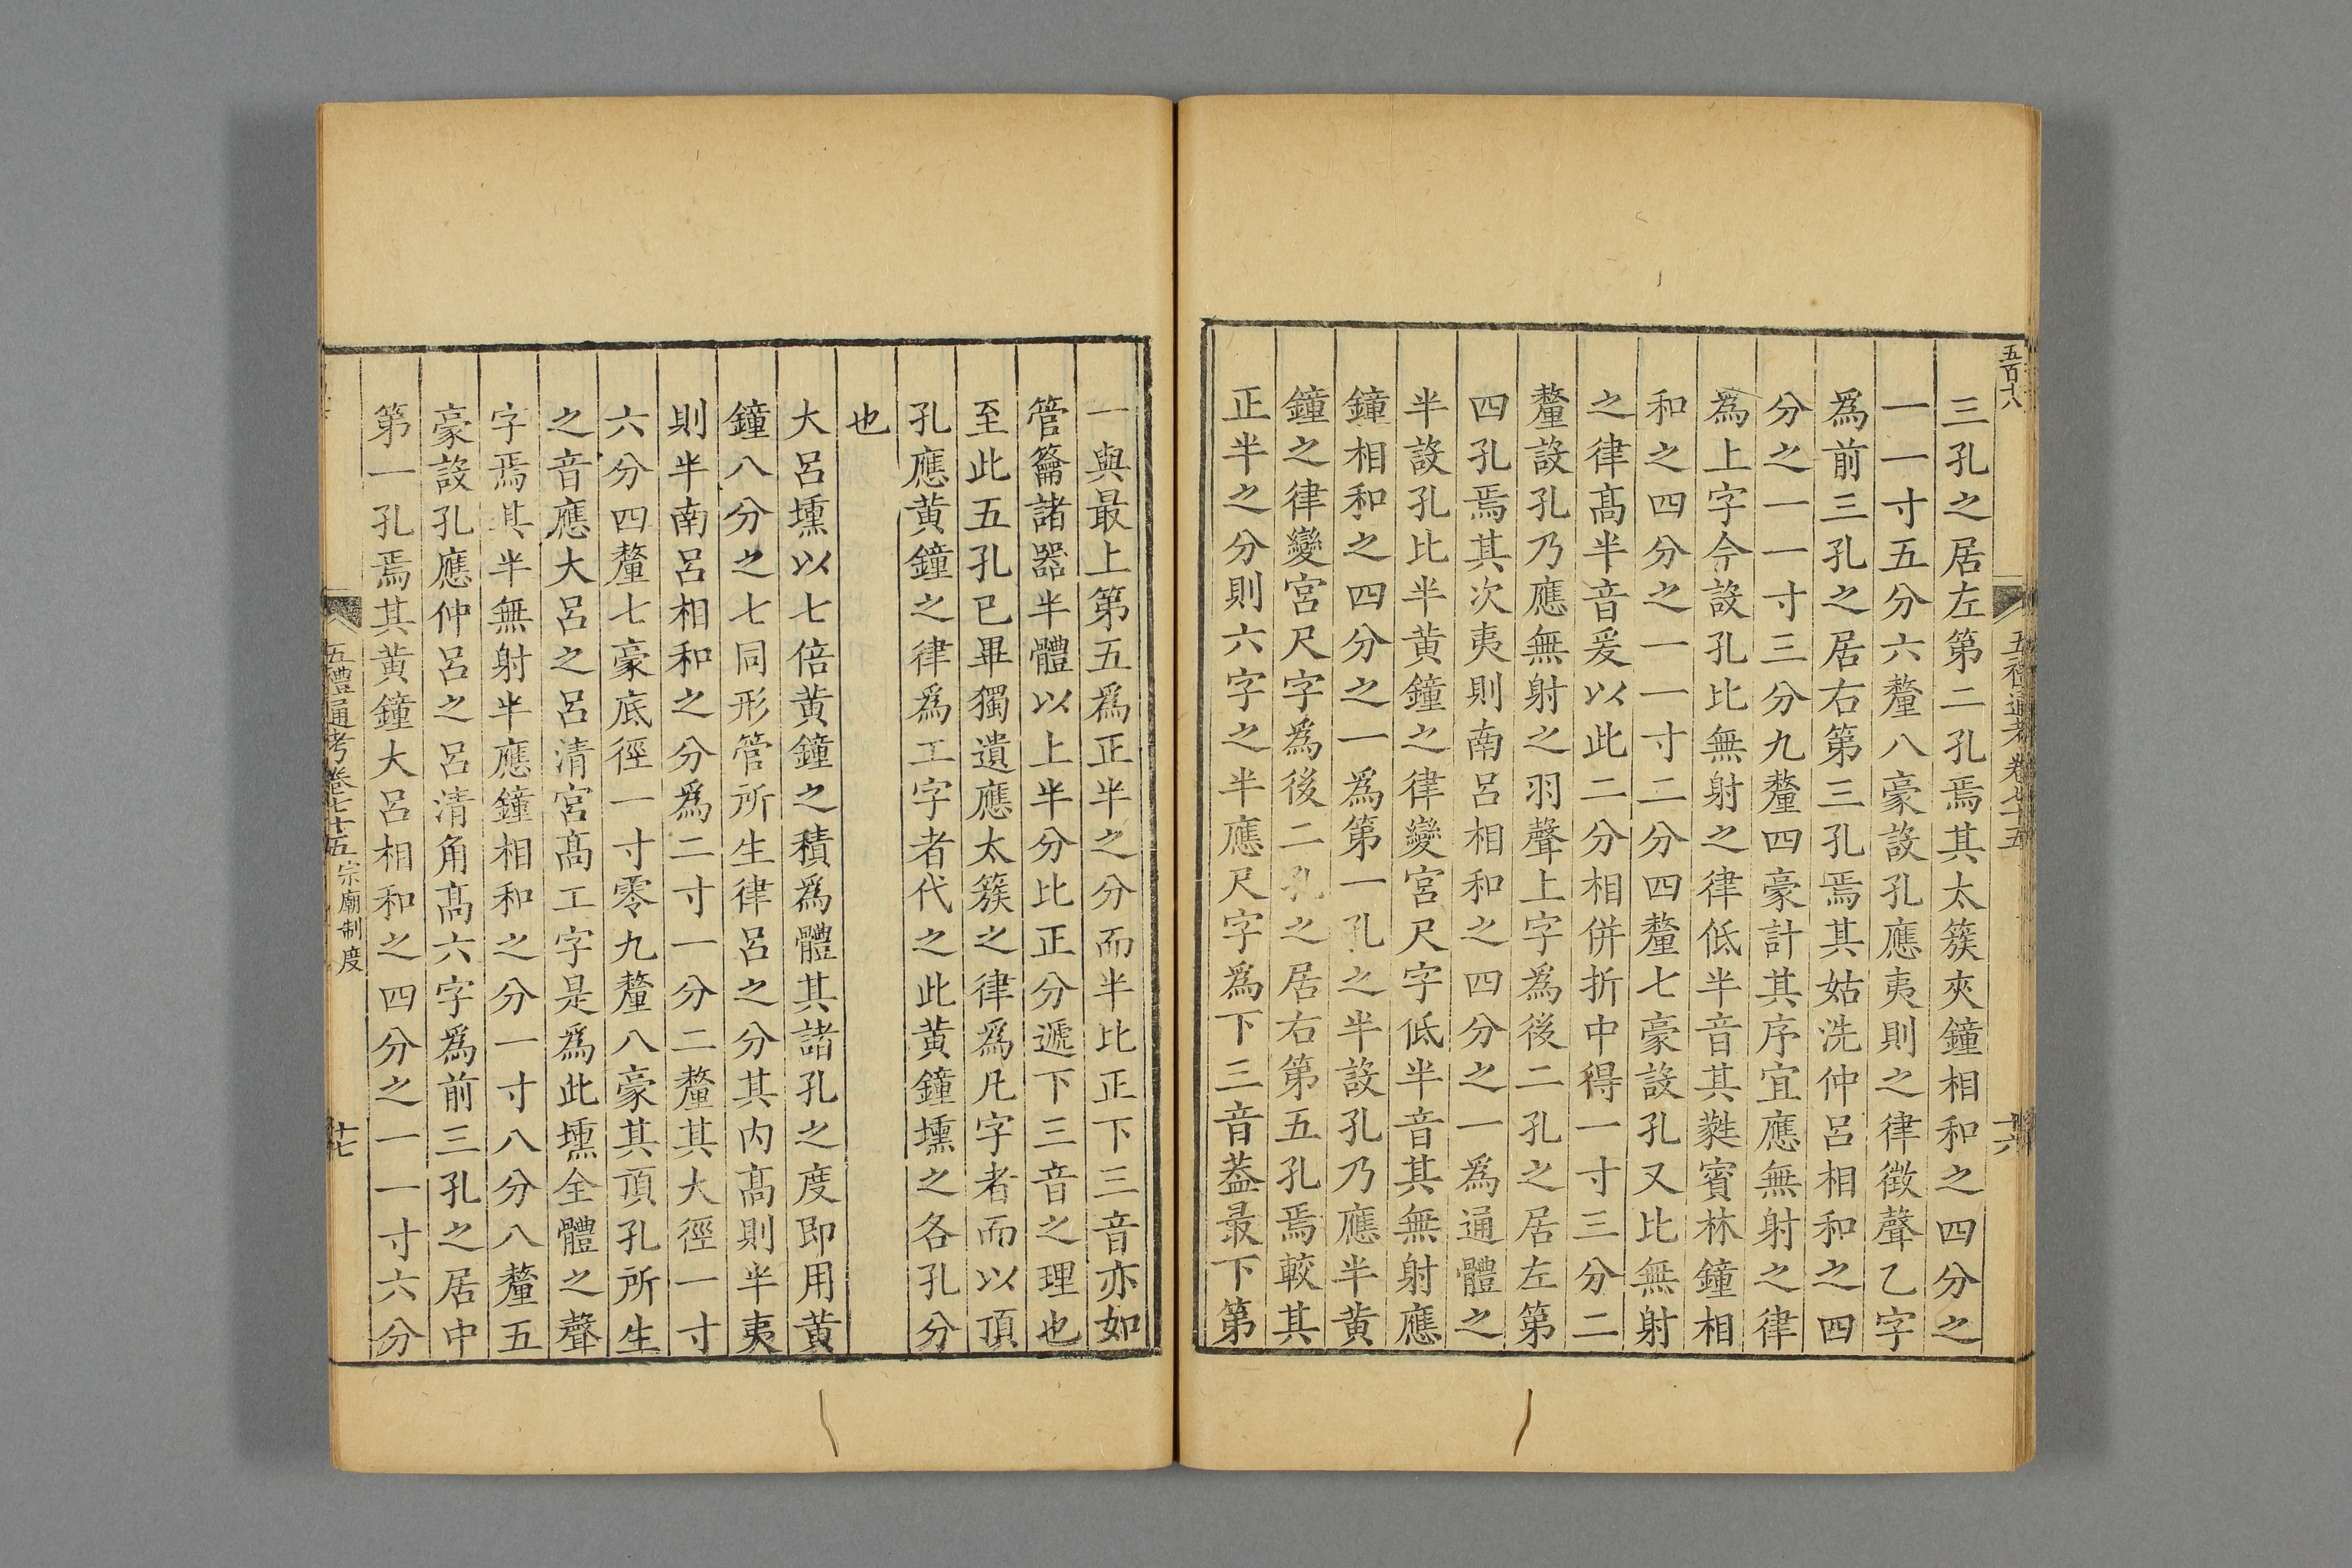 五百十八
五禮通考卷七十五
十六
三孔之居左第二孔焉其太簇夾鐘相和之四分之
一一寸五分六釐八豪設孔應夷則之律徴聲乙字
爲前三孔之居右第三孔焉其姑洗仲呂相和之四
分之一一寸三分九釐四豪計其序宜應無射之律
爲上字今設孔比無射之律低半音其蕤賓林鐘相
和之四分之一一寸二分四釐七豪設孔又比無射
之律髙半音爰以此二分相併折中得一寸三分二
釐設孔乃應無射之羽聲上字爲後二孔之居左第
四孔焉其次夷則南呂相和之四分之一爲通體之
半設孔比半黄鐘之律變宮尺字低半音其無射應
鐘相和之四分之一爲第一孔之半設孔乃應半黄
鐘之律變宮尺字爲後二孔之居右第五孔焉較其
正半之分則六字之半應尺字爲下三音葢最下第
一與最上第五爲正半之分而半比正下三音亦如
管籥諸器半體以上半分比正分遞下三音之理也
至此五孔已畢獨遺應太簇之律爲凡字者而以頂
孔應黄鐘之律爲工字者代之此黄鐘壎之各孔分
也
大呂壎以七倍黄鐘之積爲體其諸孔之度即用黄
鐘八分之七同形管所生律呂之分其内髙則半夷
則半南呂相和之分爲二寸一分二釐其大徑一寸
六分四釐七豪底徑一寸零九釐八豪其頂孔所生
之音應大呂之呂清宮髙工字是爲此壎全體之聲
字焉其半無射半應鐘相和之分一寸八分八釐五
豪設孔應仲呂之呂清角髙六字爲前三孔之居中
第一孔焉其黄鐘大呂相和之四分之一一寸六分
五禮通考卷七十五 宗廟制度
十七